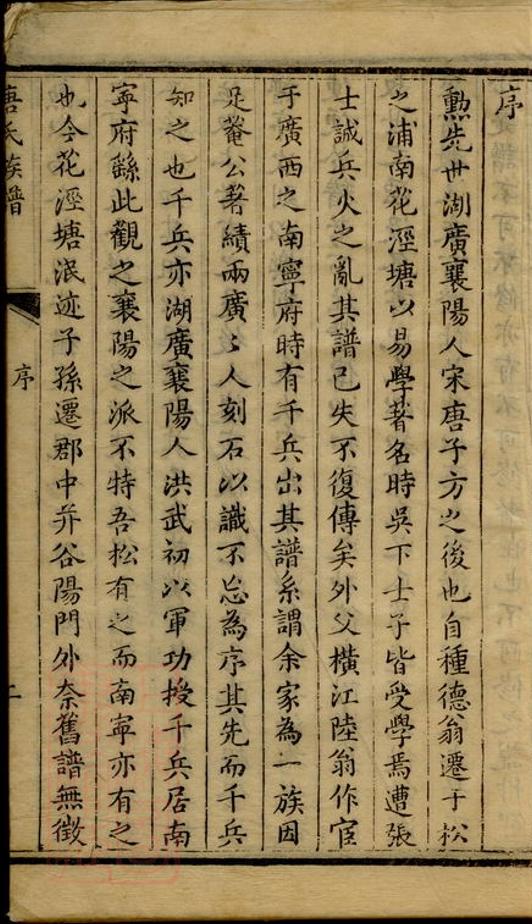 序
勳先世湖廣襄陽人宋唐子方之後也自種德翁遷于松
之浦南花涇塘以易學著名時吳下士子皆受學焉遭張
士誠兵火之亂其譜已失不復傳矣外父橫江陸翁作宦
于廣西之南寧府時有千兵出其譜系謂余家為一族因
足菴公著績兩廣〻人刻石以識不忘為序其先而千兵
知之也千兵亦湖廣襄陽人洪武初以軍功授千兵居南
寧府繇此觀之襄陽之派不特吾松有之而南寧亦有之
也今花涇塘泯迹子孫遷郡中并谷陽門外奈舊譜無徵
唐氏族譜
序
二